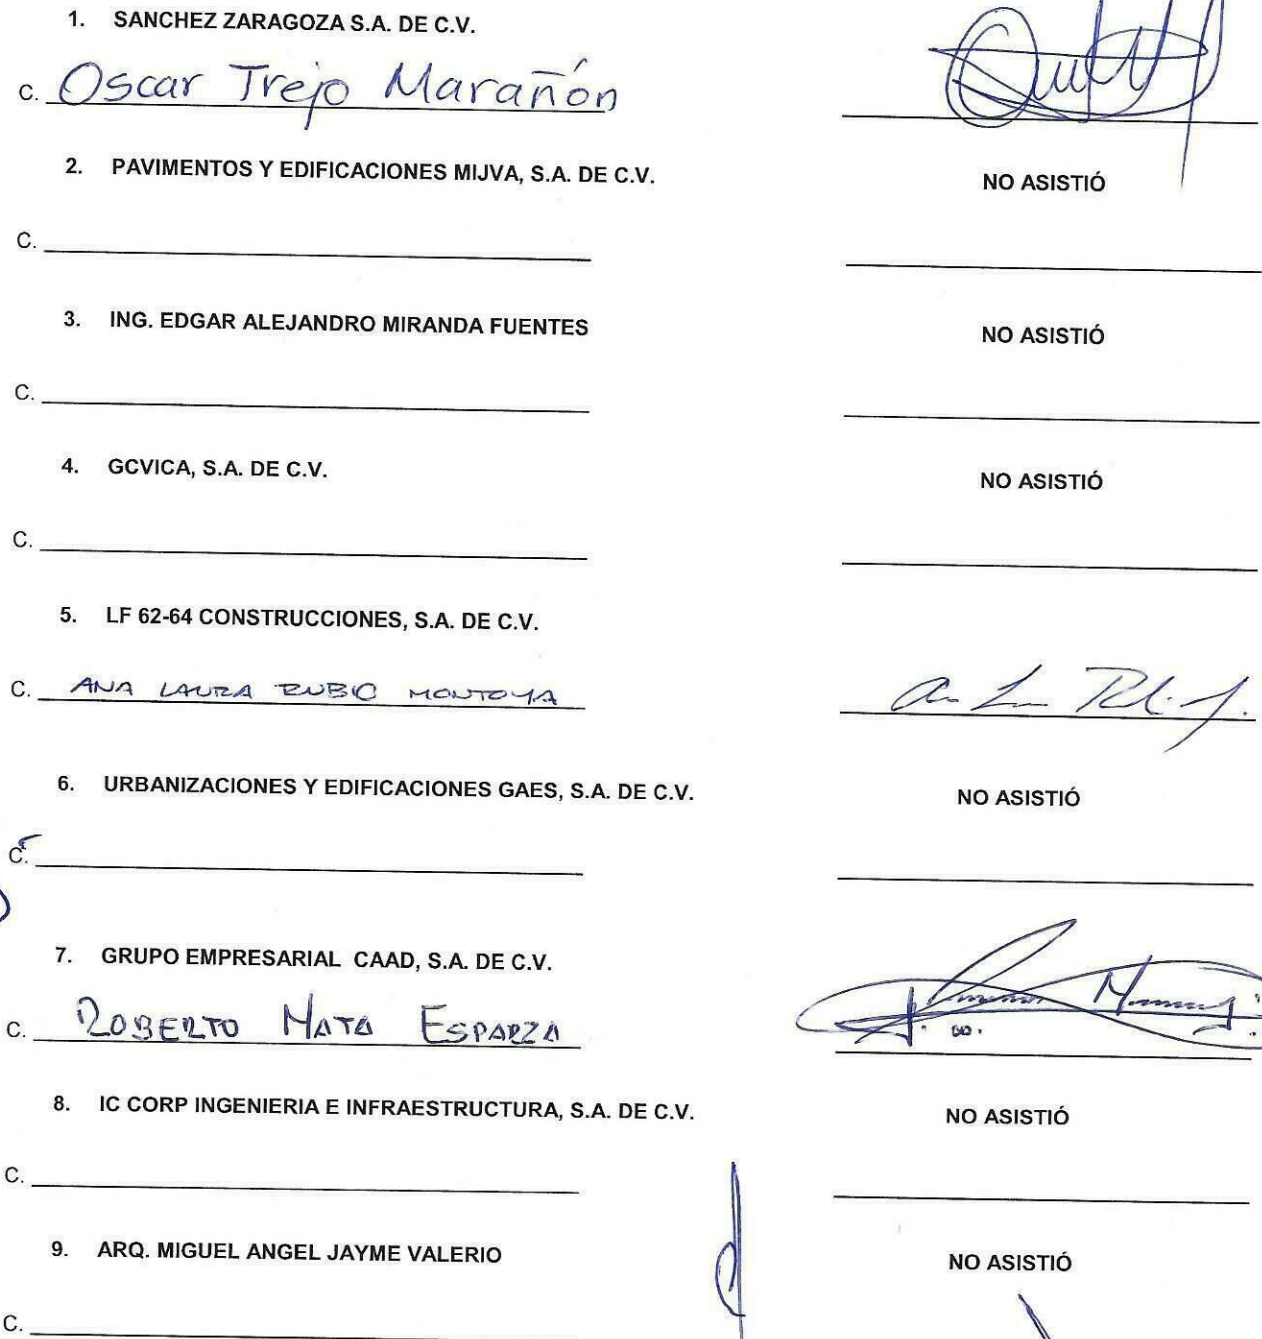 1. SANCHEZ ZARAGOZA S.A. DE C.V.
C. Oscar Trejo Marañón
2. PAVIMENTOS Y EDIFICACIONES MIJVA, S.A. DE C.V. NO ASISTIÓ
C.
3. ING. EDGAR ALEJANDRO MIRANDA FUENTES NO ASISTIÓ
C.
4. GCVICA, S.A. DE C.V. NO ASISTIÓ
C.
5. LF 62-64 CONSTRUCCIONES, S.A. DE C.V.
C. ANA LAURA RUBIO MONTOYA
6. URBANIZACIONES Y EDIFICACIONES GAES, S.A. DE C.V. NO ASISTIÓ
C.
7. GRUPO EMPRESARIAL CAAD, S.A. DE C.V.
C. ROBERTO MATA ESPARZA
8. IC CORP INGENIERIA E INFRAESTRUCTURA, S.A. DE C.V. NO ASISTIÓ
C.
9. ARQ. MIGUEL ANGEL JAYME VALERIO NO ASISTIÓ
C.